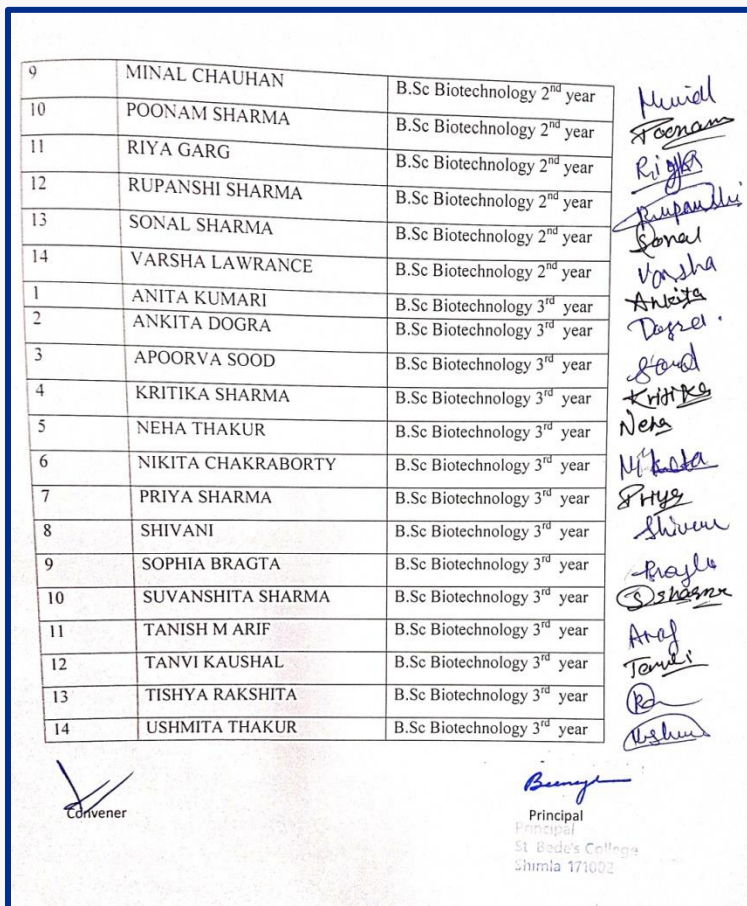 9 MINAL CHAUHAN B.Sc Biotechnology 2nd year
10 POONAM SHARMA B.Sc Biotechnology 2nd year Poonam
11 RIYA GARG B.Sc Biotechnology 2nd year
12 RUPANSHI SHARMA B.Sc Biotechnology 2nd year Rupanshi
13 SONAL SHARMA B.Sc Biotechnology 2nd year Sonal
14 VARSHA LAWRANCE B.Sc Biotechnology 2nd year Varsha
1 ANITA KUMARI B.Sc Biotechnology 3rd year
2 ANKITA DOGRA B.Sc Biotechnology 3rd year Dogra.
3 APOORVA SOOD B.Sc Biotechnology 3rd year Sood
4 KRITIKA SHARMA B.Sc Biotechnology 3rd year Kritika
5 NEHA THAKUR B.Sc Biotechnology 3rd year Neha
6 NIKITA CHAKRABORTY B.Sc Biotechnology 3rd year
7 PRIYA SHARMA B.Sc Biotechnology 3rd year Priya
8 SHIVANI B.Sc Biotechnology 3rd year
9 SOPHIA BRAGTA B.Sc Biotechnology 3rd year
10 SUVANSHITA SHARMA B.Sc Biotechnology 3rd year S sharma
11 TANISH M ARIF B.Sc Biotechnology 3rd year
12 TANVI KAUSHAL B.Sc Biotechnology 3rd year
13 TISHYA RAKSHITA B.Sc Biotechnology 3rd year
14 USHMITA THAKUR B.Sc Biotechnology 3rd year
Convener Principal
Principal
St Bede's College
Shimla 171002